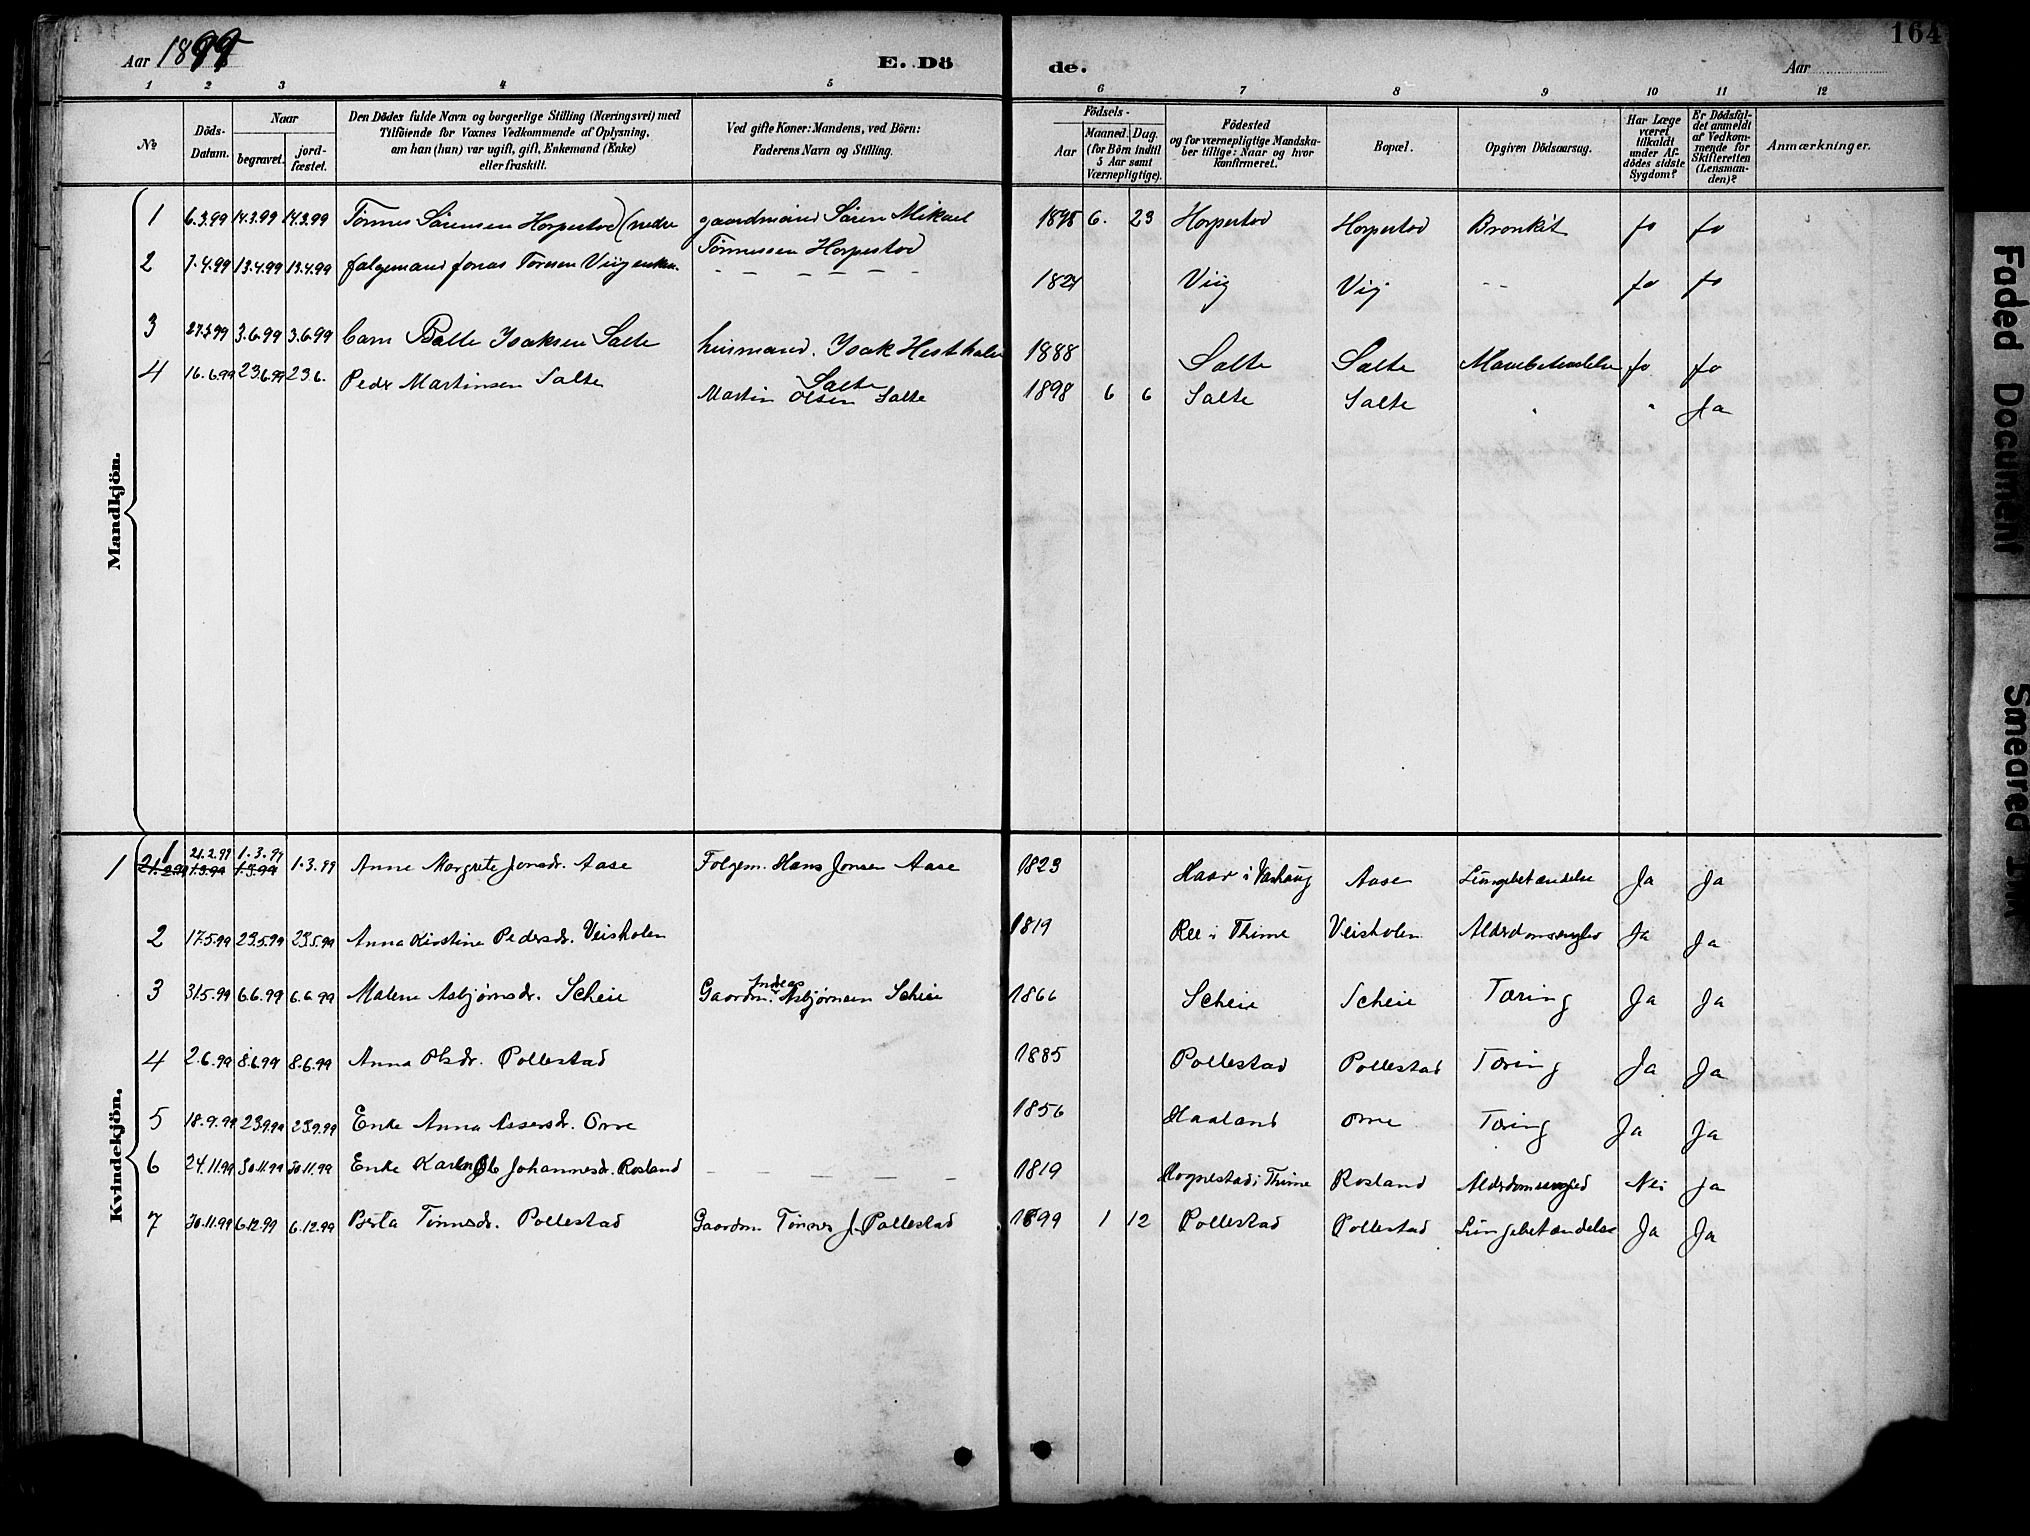 Aar 1899 E. Dö de. Aar 164
1 2 3 4 5 6 7 8 9 10 11 12
№ Döds-Datum. Naar begravet. jord-fæstet. Den Dödes fulde Navn og borgerlige Stilling (Næringsvei) med Tilföiende for Voxnes Vedkommende af Oplysning, om han (hun) var ugift, gift, Enkemand (Enke) eller fraskilt. Ved gifte Koner: Mandens, ved Börn: Faderens Navn og Stilling. Födsels- Aar Maaned. Dag. (for Börn indtil 5 Aar samt Værnepligtige). Födested og for værnepligtige Mandska-ber tillige: Naar og hvor konfirmeret. Bopæl. Opgiven Dödsaarsag. Har Læge været tilkaldt under Af-dödes sidste Sygdom? Er Dödsfal-det anmeldt af Vedkom-mende for Skifteretten (Lensman-den)? Anmærkninger.
Mandkjön.
1 6.3.99 14.3.99 14.3.99 Tönnes Sörensen Horpestad (nedre gaardmand Sören Mikael 6. 23 Horpestad Horpestad Bronkit Ja Ja
Tönnessen Horpestad
2 7.4.99 13.4.99 13.4.99 folgemand Jonas Toresen Viig - - - - - - Viig Vig - - Ja Ja
3 27.5.99 3.6.99 3.6.99 barn Balle Isaksen Salte husmand. Isak Hesthalen 1888 Salte Salte Mavebetændelse Ja Ja
Salte
4 16.6.99 23.6.99 23.6. Peder Martinsen Salte Martin Olsen Salte 1898 6 6 Salte Salte " " Ja
Kvindekjön.
1 1 21.2.99 1.3.99 1.3.99 Anne Margrete Jonsdr. Aase Folgem. Hans Jonsen Aase 1823 Haar i Varhaug Aase Lungebetændelse Ja Ja
21.2.99 1.3.99 1.3.99
2 17.5.99 23.5.99 23.5.99 Anna Kirstine Pedersdr. Veisholen 1819 Ree i Thime Veisholen Ja Ja
3 31.5.99 6.6.99 6.6.99 Malene Asbjørnsdr. Scheie Gaardm. Andreas Asbjørnsen Scheie 1866 Scheie Scheie Tæring Ja Ja
4 2.6.99 8.6.99 8.6.99 Anna Olsdr. Pollestad 1885 Pollestad Pollestad Tæring Ja Ja
5 18.9.99 23.9.99 23.9.99 Enke Anna Assersdr. Orre 1856 Haaland Orre Tæring Ja Ja
6 24.11.99 30.11.99 30.11.99 Enke Johannesdr. Rosland - - - - - 1819 Hognestad i Thime Rosland Nei Ja
7 30.11.99 6.12.99 6.12.99 Berta Tönnesdr. Pollestad Gaardm. Tönnes J. Pollestad 1899 1 12 Pollestad Pollestad Lungebetændelse Ja Ja
Faded Document
Smeared Ink